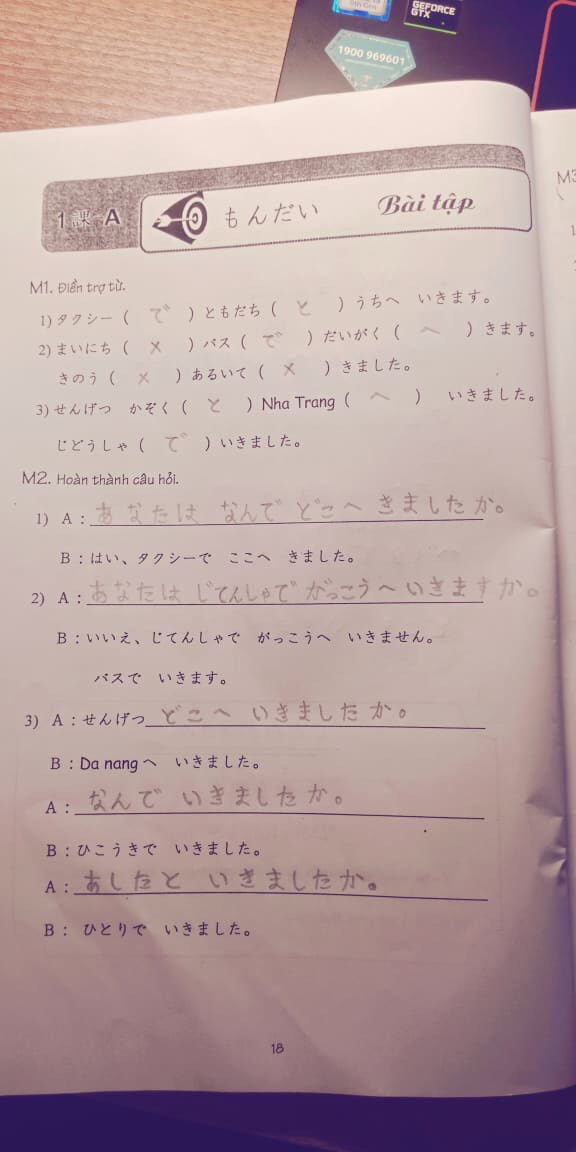 GEFORCE
GTX
1900 969601
1 課 - A
もんだい
Bài tập
M1. Điền trợ từ.
1) タクシー ( で ) ともだち ( と ) うちへ いきます。
2) まいにち ( × ) バス ( で ) だいがく ( へ ) きます。
きのう ( × ) あるいて ( × ) きました。
3) せんげつ かぞく ( と ) Nha Trang ( へ ) いきました。
じどうしゃ ( で ) いきました。
M2. Hoàn thành câu hỏi.
1) A : あなたは なんで どこへ きましたか。
B : はい、タクシーで ここへ きました。
2) A : あなたは じてんしゃで がっこうへ いきますか。
B : いいえ、じてんしゃで がっこうへ いきません。
バスで いきます。
3) A : せんげつ どこへ いきましたか。
B : Da nang へ いきました。
A : なんで いきましたか。
B : ひこうきで いきました。
A : あしたと いきましたか。
B : ひとりで いきました。
18
M3